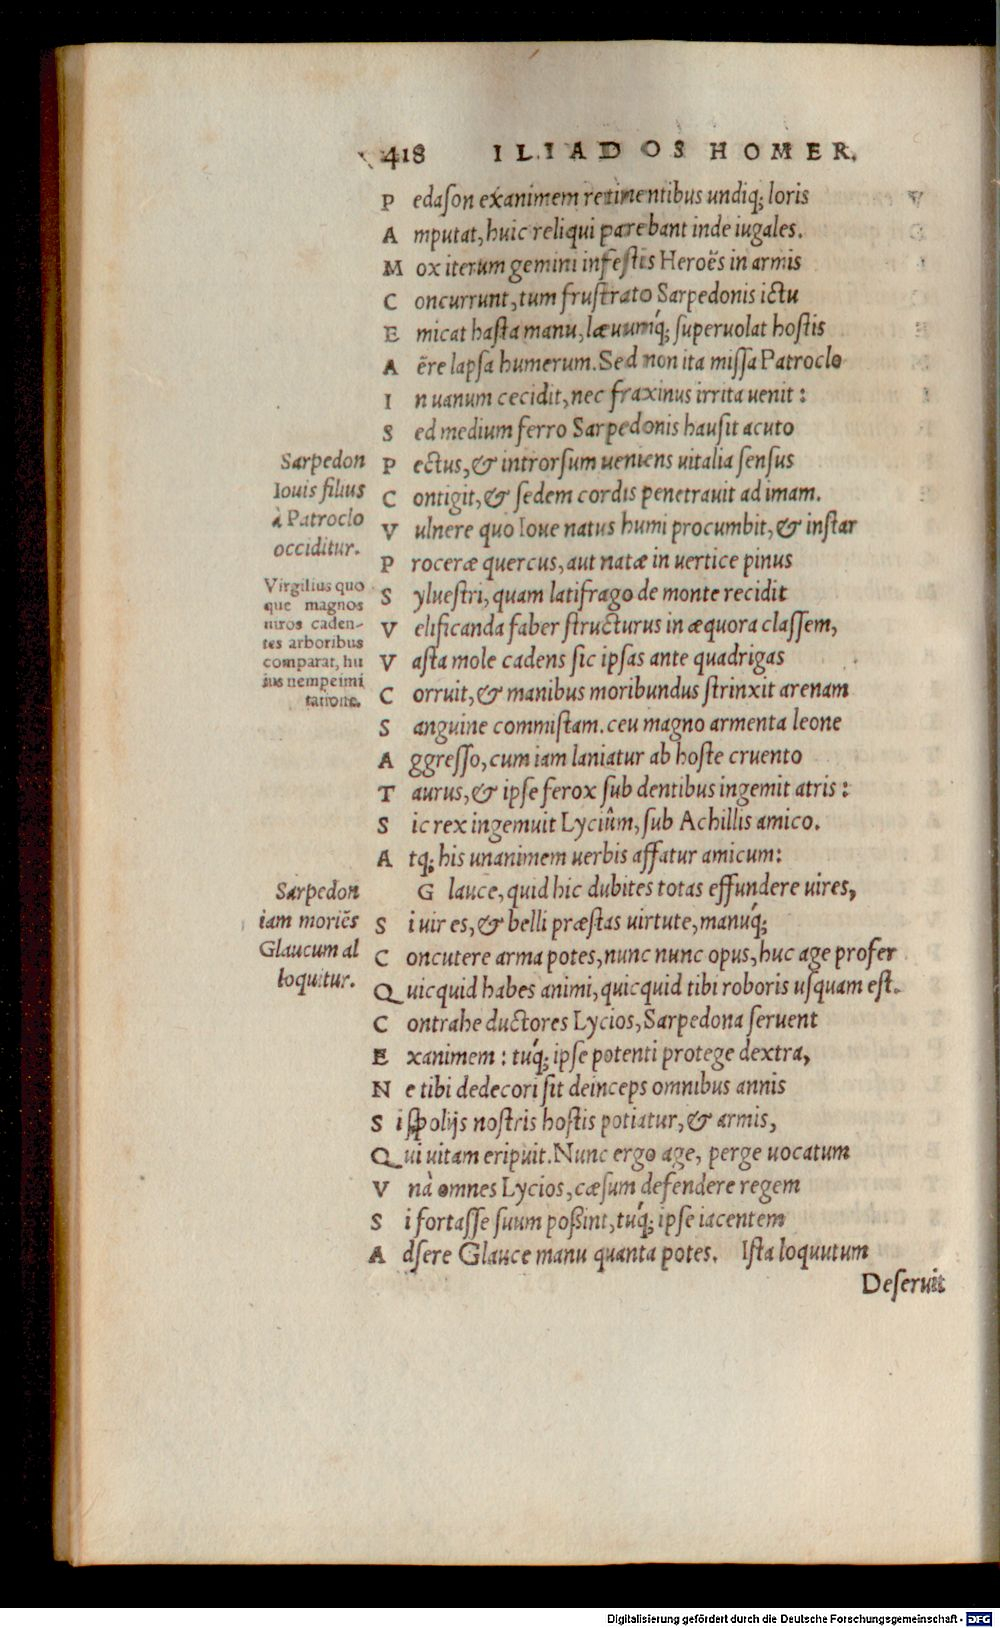 418 ILIADOS HOMER.
Pedaſon exanimem retinentibus undiq; loris
Amputat, huic reliqui parebant inde iugales.
Mox iterum gemini infeſtis Heroẽs in armis
Concurrunt, tum fruſtrato Sarpedonis ictu
Emicat haſta manu, læuumq́; superuolat hoſtis
Aẽre lapſa humerum. Sed non ita miſſa Patroclo
In uanum cecidit, nec fraxinus irrita uenit:
Sed medium ferro Sarpedonis hauſit acuto
Pectus, & introrſum ueniens uitalia ſenſus
Contigit, & ſedem cordis penetrauit ad imam.
Vulnere quo Ioue natus humi procumbit, & inſtar
Proceræ quercus, aut natæ in uertice pinus
Sylueſtri, quam latifrago de monte recidit
Velificanda faber ſtructurus in æquora claſſem,
Vaſta mole cadens ſic ipſas ante quadrigas
Corruit, & manibus moribundus ſtrinxit arenam
Sanguine commiſtam. ceu magno armenta leone
Aggreſſo, cum iam laniatur ab hoſte cruento
Taurus, & ipſe ferox ſub dentibus ingemit atris:
Sic rex ingemuit Lyciûm, ſub Achillis amico.
Atq; his unanimem uerbis affatur amicum:
Glauce, quid hic dubites totas effundere uires,
Si uir es, & belli præſtas uirtute, manuq́;
Concutere arma potes, nunc nunc opus, huc age profer
Quicquid habes animi, quicquid tibi roboris uſquam eſt.
Contrahe ductores Lycios, Sarpedona ſeruent
Exanimem: tuq́; ipſe potenti protege dextra,
Ne tibi dedecori ſit deinceps omnibus annis
Si ſpolijs noſtris hoſtis potiatur, & armis,
Qui uitam eripuit. Nunc ergo age, perge uocatum
Vnà omnes Lycios, cæſum defendere regem
Si fortaſſe ſuum poßint, tuq́; ipſe iacentem
Adſere Glauce manu quanta potes. Iſta loquutum
Deſeruit
Sarpedon
Iouis filius
à Patroclo
occiditur.
Virgilius quo
que magnos
uiros caden-
tes arboribus
comparat, hu
ius nempe imi
tatione.
Sarpedon
iam moriẽs
Glaucum al
loquitur.
Digitalisierung gefördert durch die Deutsche Forschungsgemeinschaft - DFG